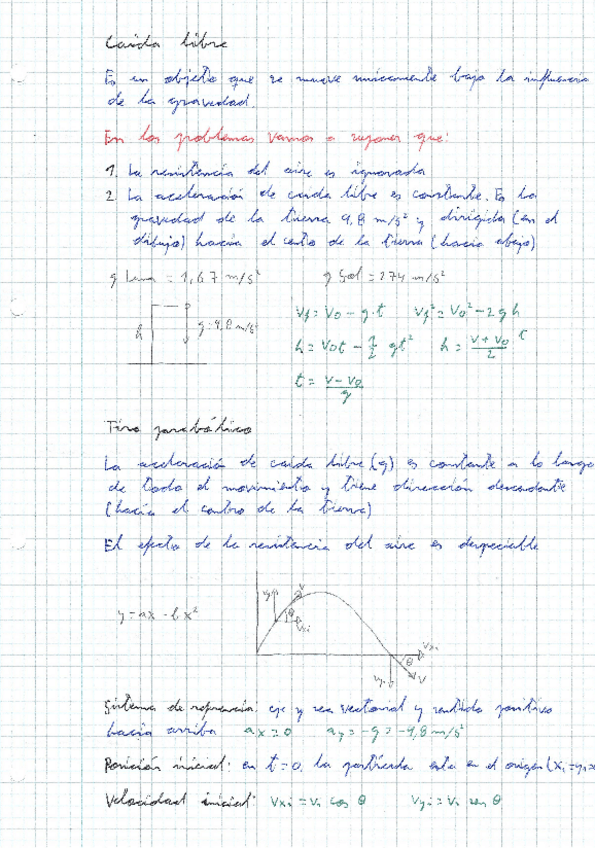 Caída libre
Es un objeto que se mueve unicamente bajo la influencia
de la gravedad.
En los problemas vamos a suponer que:
1. La resistencia del aire es ignorada
2. La aceleración de caída libre es constante. Es la
gravedad de la tierra 9,8 m/s² y dirigida (en el
dibujo) hacia el centro de la tierra (hacia abajo)
g Luna = 1,67 m/s² g Sol = 274 m/s²
h g: 9,8 m/s²
Vf = V0 - g·t Vf² = V0² - 2 g h
h = V0t - 1/2 gt² h = (V + V0)/2 t
t = (V - V0)/g
Tiro parabólico
La aceleración de caída libre (g) es constante a lo largo
de todo el movimiento y tiene dirección descendente
(hacia el centro de la tierra)
El efecto de la resistencia del aire es despreciable
y = ax - bx²
V
θ
Vxi
Vxi
θ
V
Sistema de referencia: eje y sea vectorial y sentido positivo
hacia arriba ax = 0 ay = -g = -9,8 m/s²
Posición inicial: en t = 0, la partícula esta en el origen (xi = yi =
Velocidad inicial: Vxi = Vi cos θ Vyi = Vi sen θ